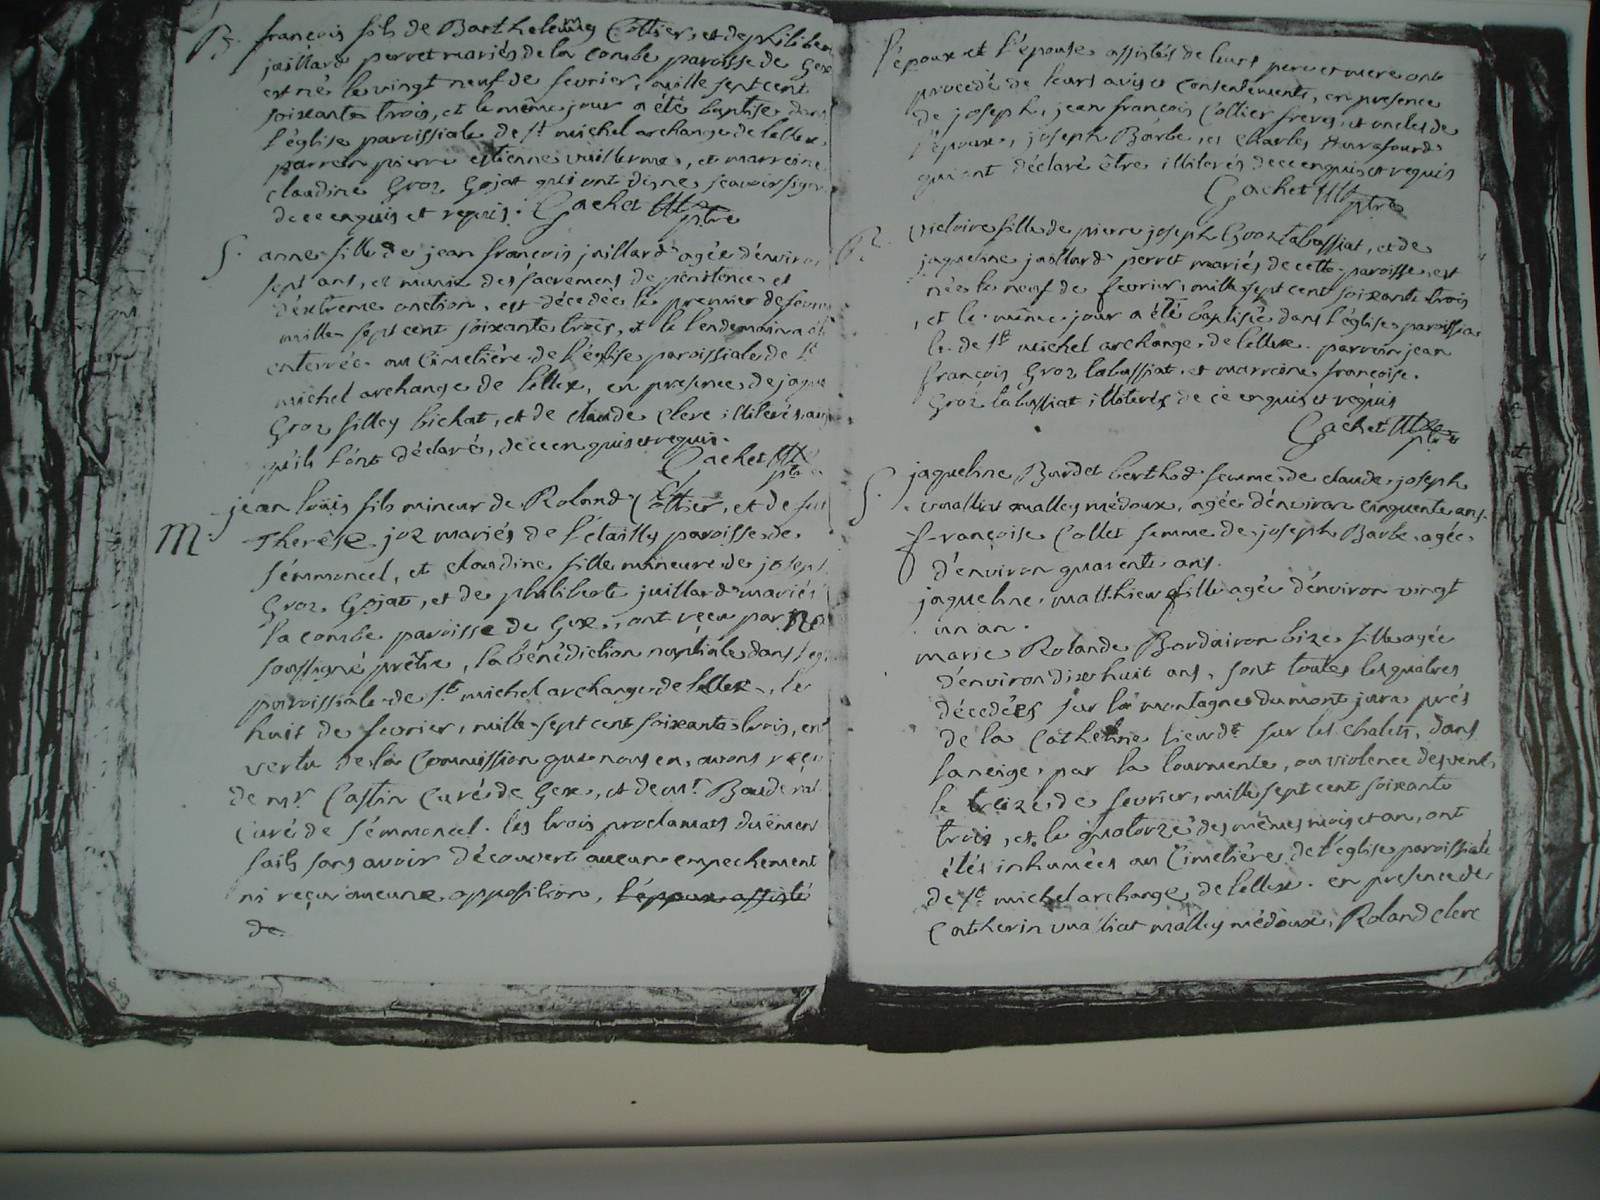 B. françois fils de Barthelemy Cottier, et de philiber
juillard perret mariés de la Combe paroisse de Gex
est né le vingt neuf de fevrier, mille sept cent
soixante trois, et le même jour a été baptisé dans
l'église paroissiale de St michel archange de lellex,
parrein pierre estienne vuillerme, et marreine
claudine Groz Gojat qui ont dis ne scavoir signer
de ce enquis et requis. Gachet ptre
S. anne fille de jean françois juillard agée d'enviro
sept ans, et munie des sacremens de pénitence et
d'extrême onction, est décedée le premier de fevrier
mille sept cent soixante trois, et le lendemain a été
enterrée au Cimetière de l'église paroissiale de St
michel archange de lellex, en presence de jaque
Groz filley bichat, et de claude clerc illiterés ainsi
qu'ils l'ont déclaré, de ce enquis et requis.
Gachet ptre
M. jean loüis fils mineur de Roland Cottier, et de
Therése joz mariés de l'étailly paroisse de
sémmoncel, et claudine fille mineure de joseph
Groz Gojat, et de philiberte juillard mariés
la combe paroisse de Gex, ont reçu par
soussigné prêtre, la bénédiction nuptiale dans l'egl
paroissiale de St michel archange de lellex, le
huit de fevrier, mille sept cent soixante trois, en
vertu de la Commission que nous en avons reçu
de mr Castin Curé de Gex, et de mr Baude
Curé de sémmoncel. les trois proclamats düement
faits sans avoir découvert aucun empechement
ni reçu aucune opposition, l'époux assisté
de
l'époux et l'épouse assistés de leurs pere et mere ont
procedé de leurs avis et consentements, en presence
de joseph, jean françois Cottier freres, et oncles de
l'époux, joseph Barbe, et charles
qui ont déclaré être illiterés de ce enquis et requis
Gachet ptre
B. victoire fille de pierre joseph Groz labassiat, et de
jaqueline juillard perret mariés de cette paroisse, est
née le neuf de fevrier, mille sept cent soixante trois
, et le même jour a été baptisée dans l'église paroissia
le de St michel archange de lellex. parrein jean
françois Groz labassiat, et marreine françoise
Groz labassiat illiterés de ce enquis et requis
Gachet ptre
S. jaqueline Bardet berthod femme de claude joseph
vualliat malley médoux, agée d'environ cinquente ans.
françoise Collet femme de joseph Barbe agée
d'environ quarente ans.
jaqueline matthieu fille agée d'environ vingt
un an.
marie Rolande Bordairon bize fille agée
d'environ dixhuit ans, sont toutes les quatres
décedées sur la montagne du mont jura prés
de la Catherine sur les chalets, dans
la neige, par la tourmente, ou violence des vents,
le treize de fevrier, mille sept cent soixante
trois, et le quatorze des mêmes mois et an, ont
étés inhumées au Cimetière de l'église paroissiale
de St michel archange de lellex. en presence de
Catherin vualliat malley médoux, Roland clerc